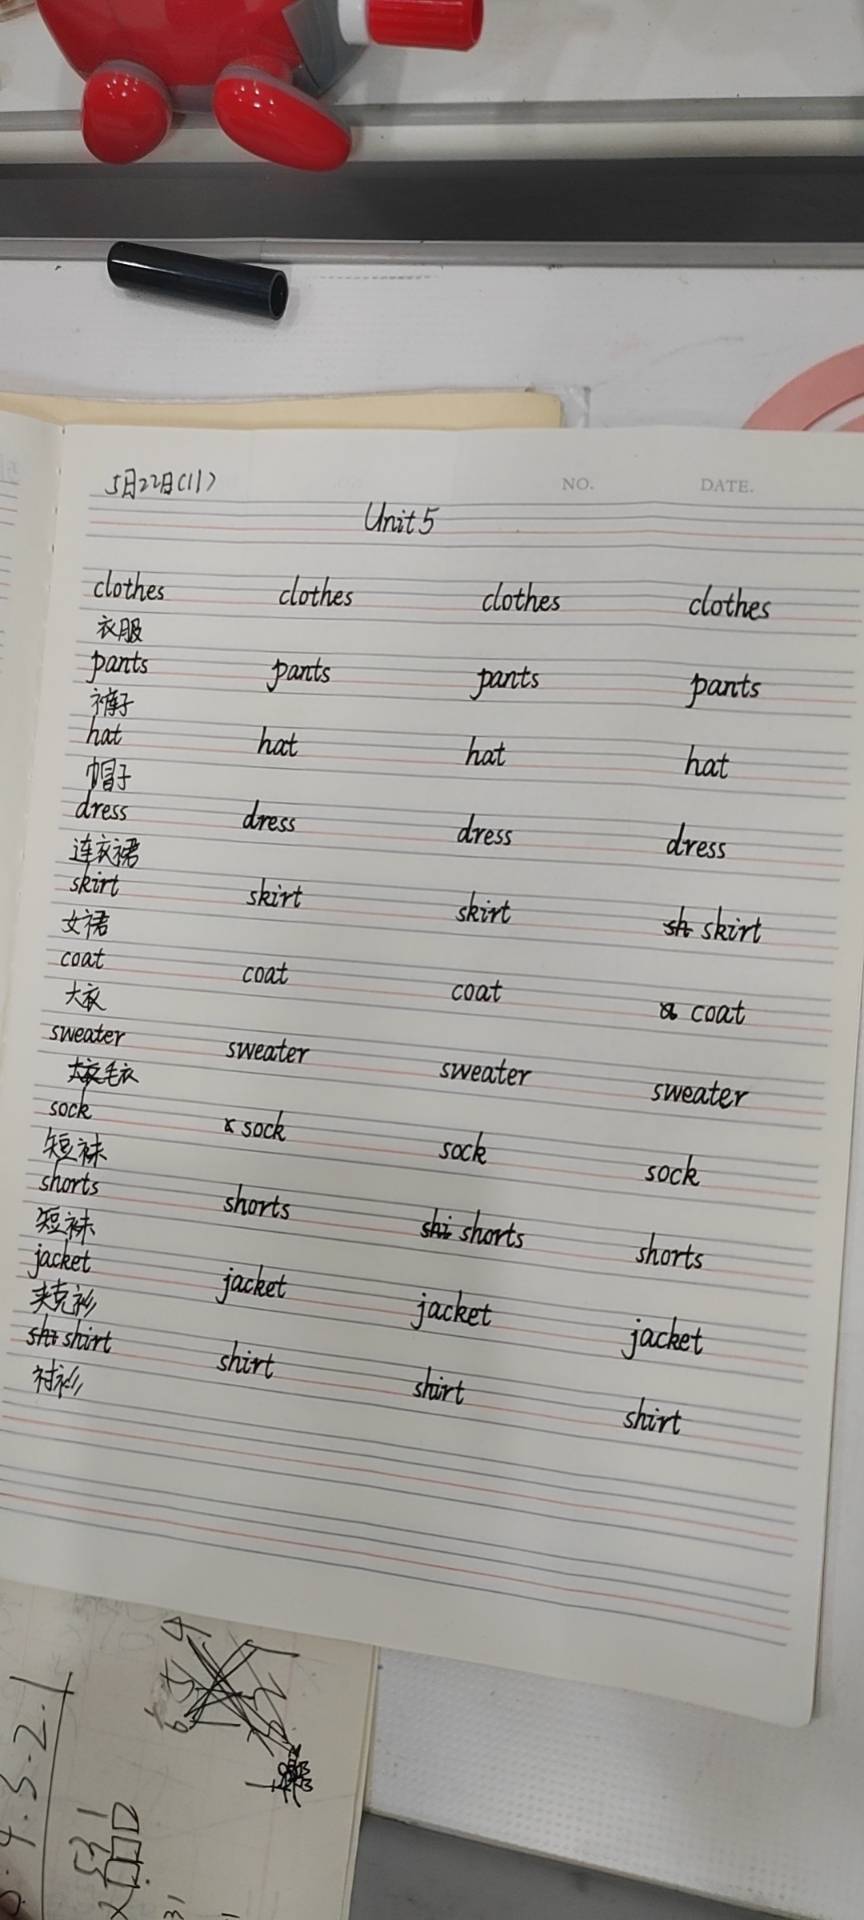 NO. DATE.
5月22日(11)
Unit 5
clothes clothes clothes clothes
衣服
pants pants pants pants
裤子
hat hat hat hat
帽子
dress dress dress dress
连衣裙
skirt skirt skirt sh skirt
女裙
coat coat coat coat
大衣
sweater sweater sweater sweater
大衣毛衣
sock sock sock sock
短袜
shorts shorts shi shorts shorts
短袜
jacket jacket jacket jacket
夹克衫
shi shirt shirt shirt shirt
衬衫